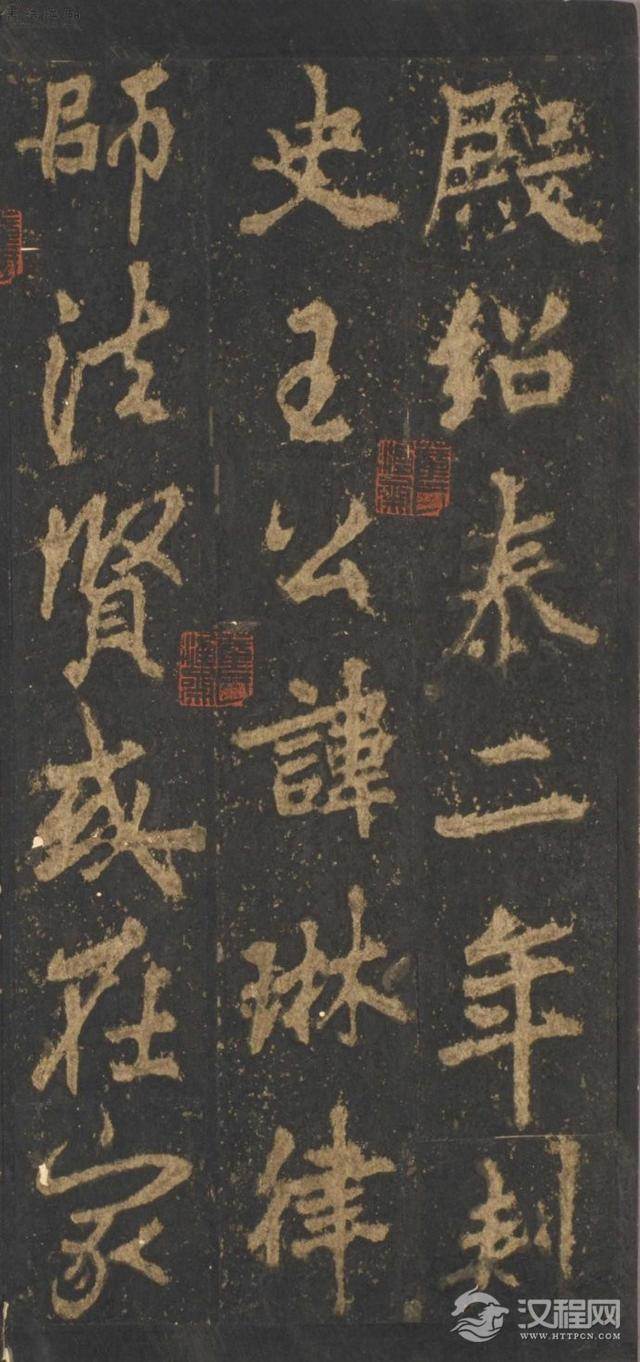 殿紹泰二年刺
史王公諱琳律
師法賢或在家
汉程网
WWW.HTTPCN.COM